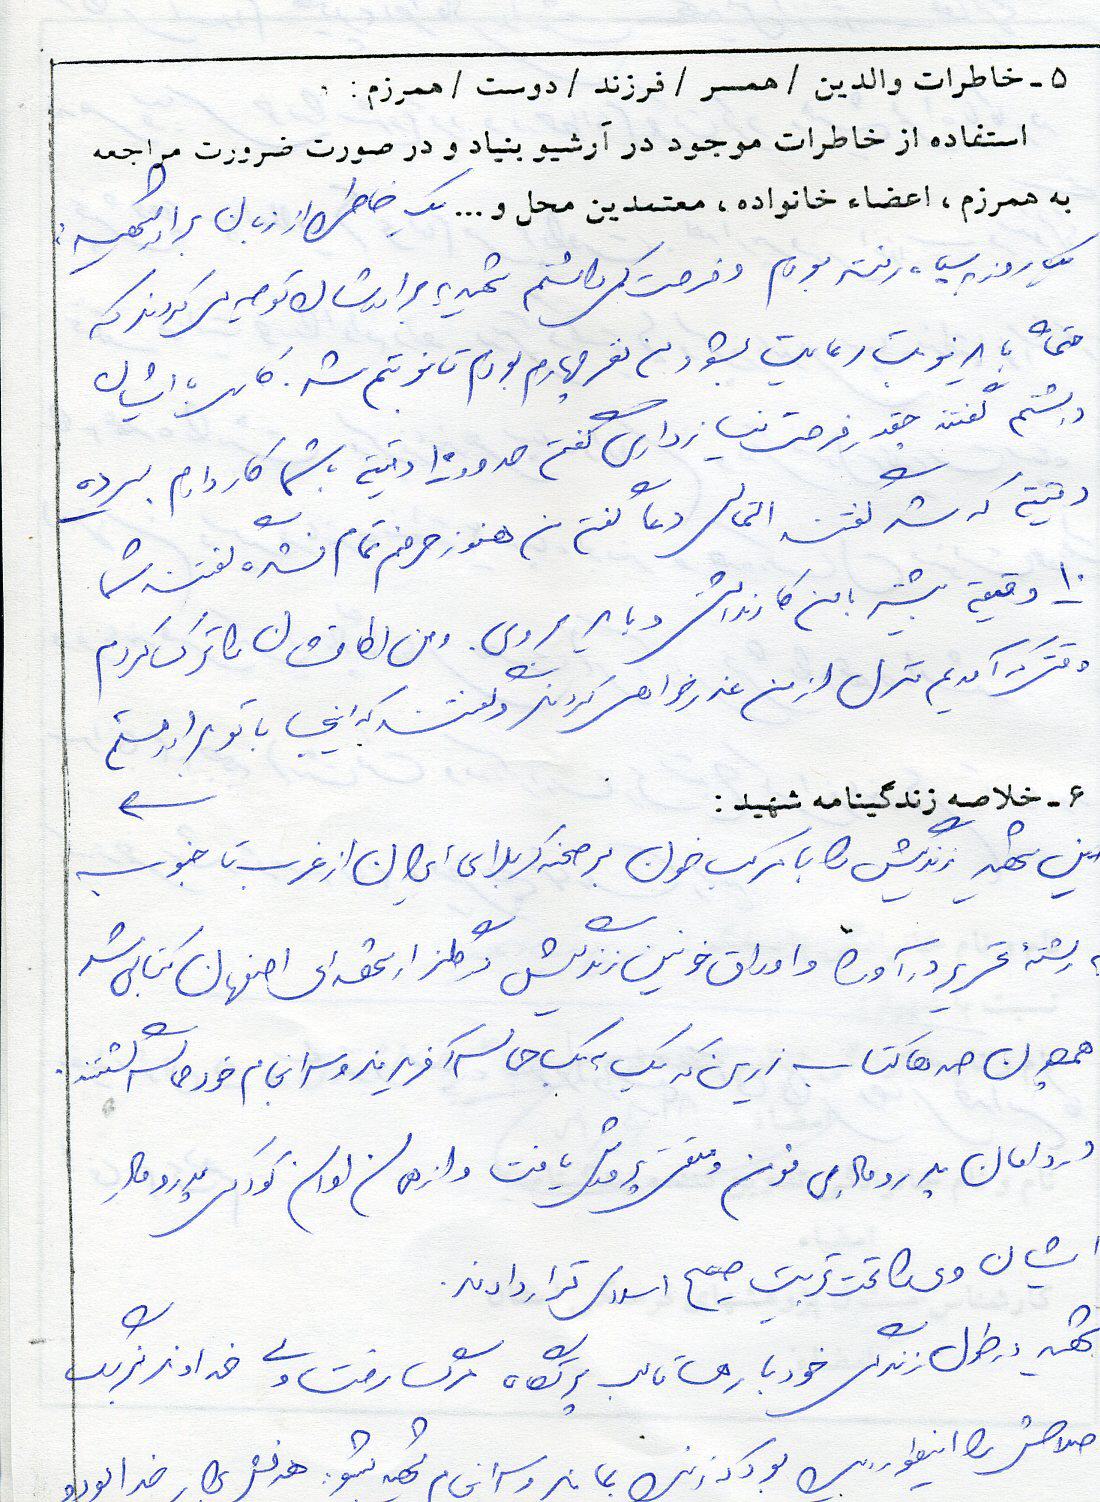 ۵ ـ خاطرات والدین / همسر / فرزند / دوست / همرزم :
استفاده از خاطرات موجود در آرشیو بنیاد و در صورت ضرورت مراجعه
به همرزم ، اعضاء خانواده ، معتمدین محل و ... یک خاطره از زبان برادر شهید :
یک روز به سپاه رفته بودم و فرصت کمی داشتم شهید به برادرشان توصیه می‌کردند که
حتماً باید نوبت رعایت بشود من نفر چهارم بودم تا نوبتم شد . کاری با ایشان
داشتم گفتند چقدر فرصت نیاز داری گفتم حدود ۱۰ دقیقه با شما کار دارم سر ده
دقیقه که شد گفتند التماس دعا گفتم من هنوز حرفم تمام نشده گفتند شما
۱۰ دقیقه بیشتر با من کار نداشتی و باید بروی . و من اطاقشان را ترک کردم
وقتی که آمدیم منزل از من عذرخواهی کردند و گفتند که اینجا با تو برادر هستم
۶ ـ خلاصه زندگینامه شهید :
این شهید زندگیش را با مرکب خون بر صحنه کربلای ایران از غرب تا جنوب
به رشته تحریر درآورد و اوراق خونین زندگیش در گلزار شهدای اصفهان کتابی شد
همچون صدها کتاب زرین که یک به یک حماسه آفریدند و سرانجام خود حماسه گشتند .
در دامان پدر و مادری مؤمن و متقی پرورش یافت و از همان اوان کودکی پدر و مادر
ایشان وی را تحت تربیت صحیح اسلامی قرار دادند .
شهید در طول زندگی خود بارها تا لب پرتگاه مرگ رفت ولی خداوند بزرگ
صلاحش را اینطور دید بود که زنده بماند و سرانجام شهید بشود . هدفش برای خدا بود و